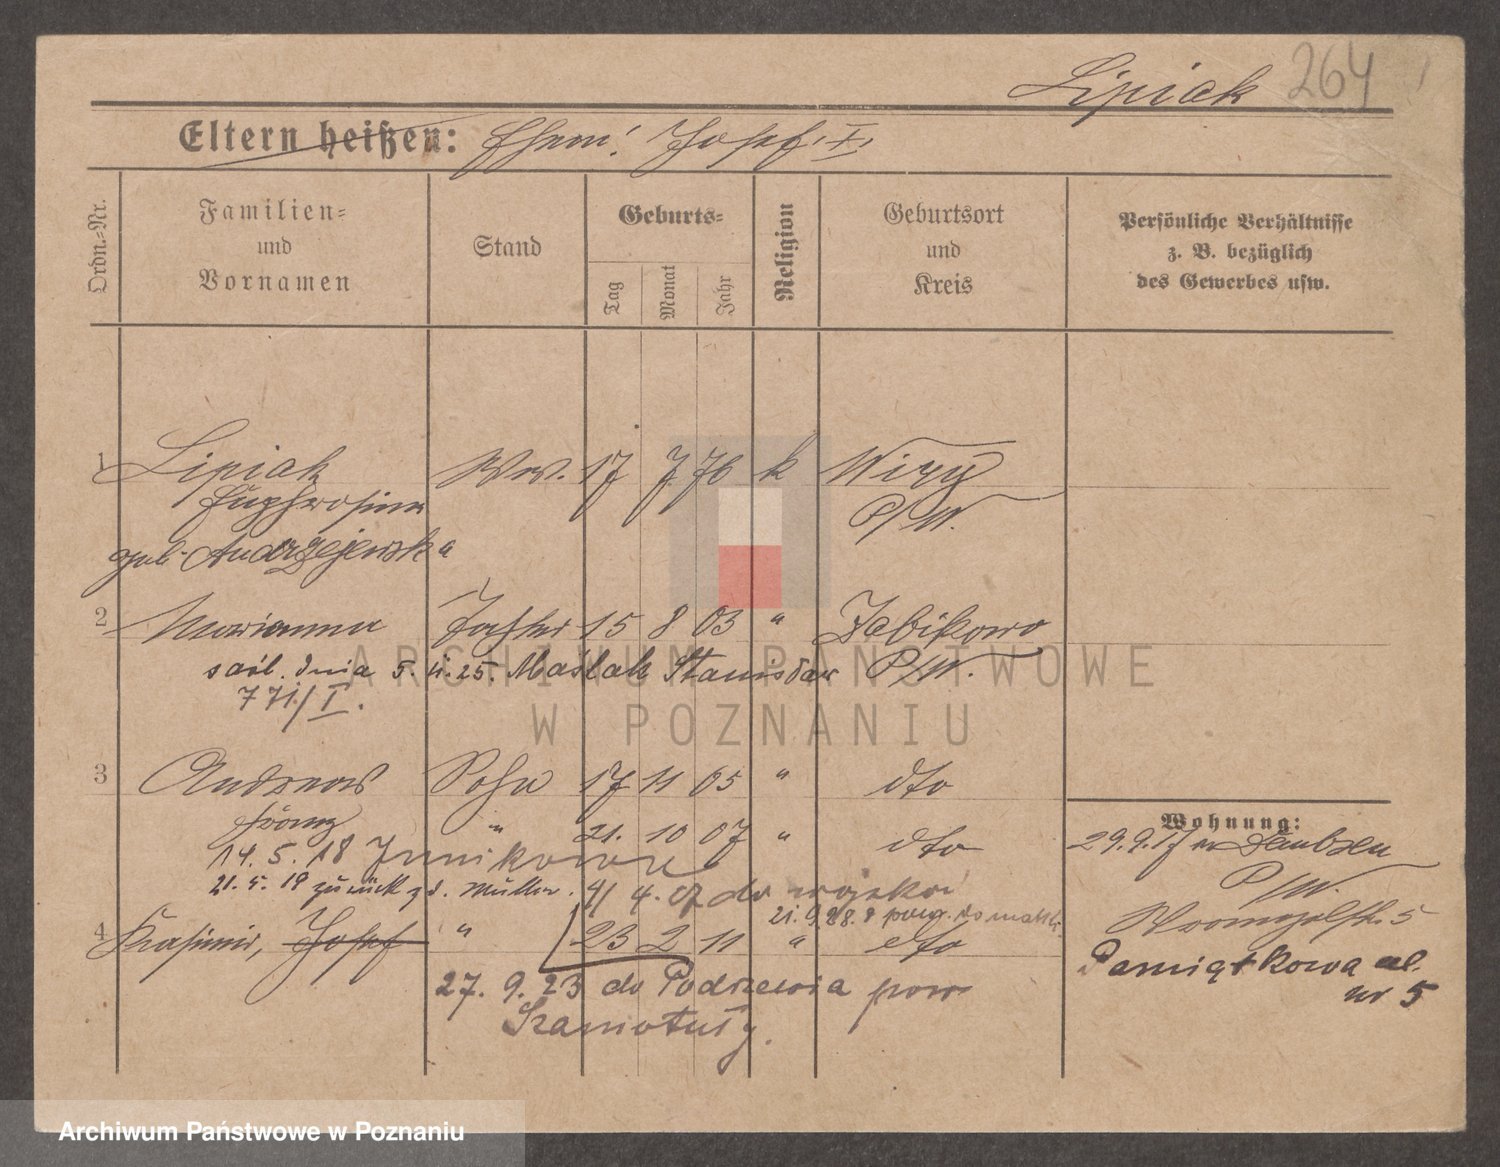 Lipiak 264
Eltern heißen: Ehem! Josef, I,
Ordn.-Nr.
Familien-
und
Vornamen
Stand
Geburts-
Tag
Monat
Jahr
Religion
Geburtsort
und
Kreis
Persönliche Verhältnisse
z. B. bezüglich
des Gewerbes usw.
1 Lipiak Ww. 17 7 76 k Wiry
Euphrosina P/W.
geb. Andrzejewska
2 Marianna Tochter 15 8 03 " Zabikowo
dnia 5. 25. Maslak Stanisław P/W.
771/I.
3 Andreas Sohn 17 11 05 " dto
Franz " 21. 10 07 " dto
14. 5. 18 Junikowo
21. 5. 19 zurück z. d. Mutter. 4. 07 do wojska
21. 9. 28. z powr. do matki
4 Kasimir, Josef " 23 2 11 " dto
27. 9. 23 do Podrzewia pow
Szamotuły.
Wohnung:
29.9.17 n Daubsen
P/W.
5
Pamiątkowa ul.
nr 5
ARCHIWUM PAŃSTWOWE
W POZNANIU
Archiwum Państwowe w Poznaniu